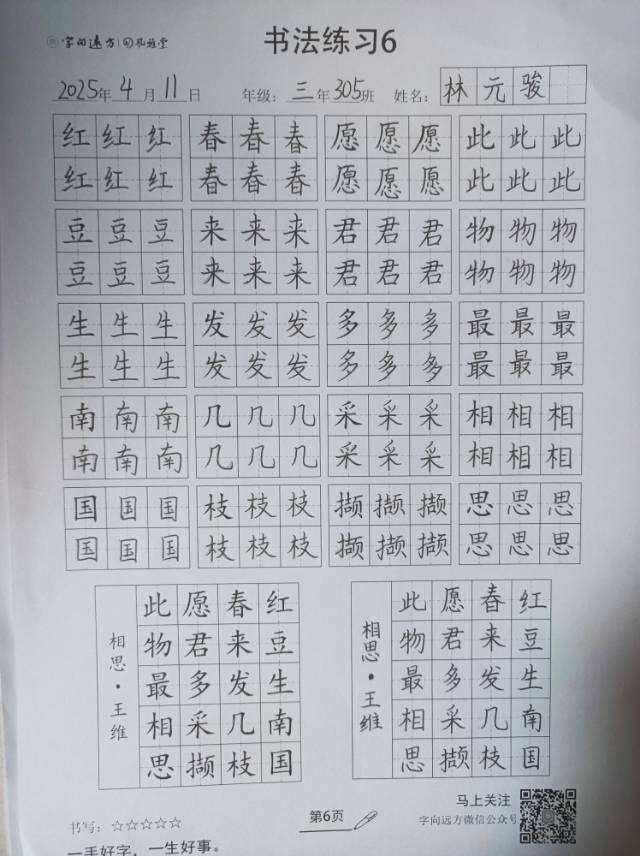 字向远方 孔庙堂
书法练习6
2025年4月11日 年级：三年305班 姓名：林元骏
红红红 春春春 愿愿愿 此此此
红红红 春春春 愿愿愿 此此此
豆豆豆 来来来 君君君 物物物
豆豆豆 来来来 君君君 物物物
生生生 发发发 多多多 最最最
生生生 发发发 多多多 最最最
南南南 几几几 采采采 相相相
南南南 几几几 采采采 相相相
国国国 枝枝枝 撷撷撷 思思思
国国国 枝枝枝 撷撷撷 思思思
红豆生南国
春来发几枝
愿君多采撷
此物最相思
相思·王维
红豆生南国
春来发几枝
愿君多采撷
此物最相思
相思·王维
书写：☆☆☆☆☆
一手好字，一生好事。
第6页
马上关注
字向远方微信公众号